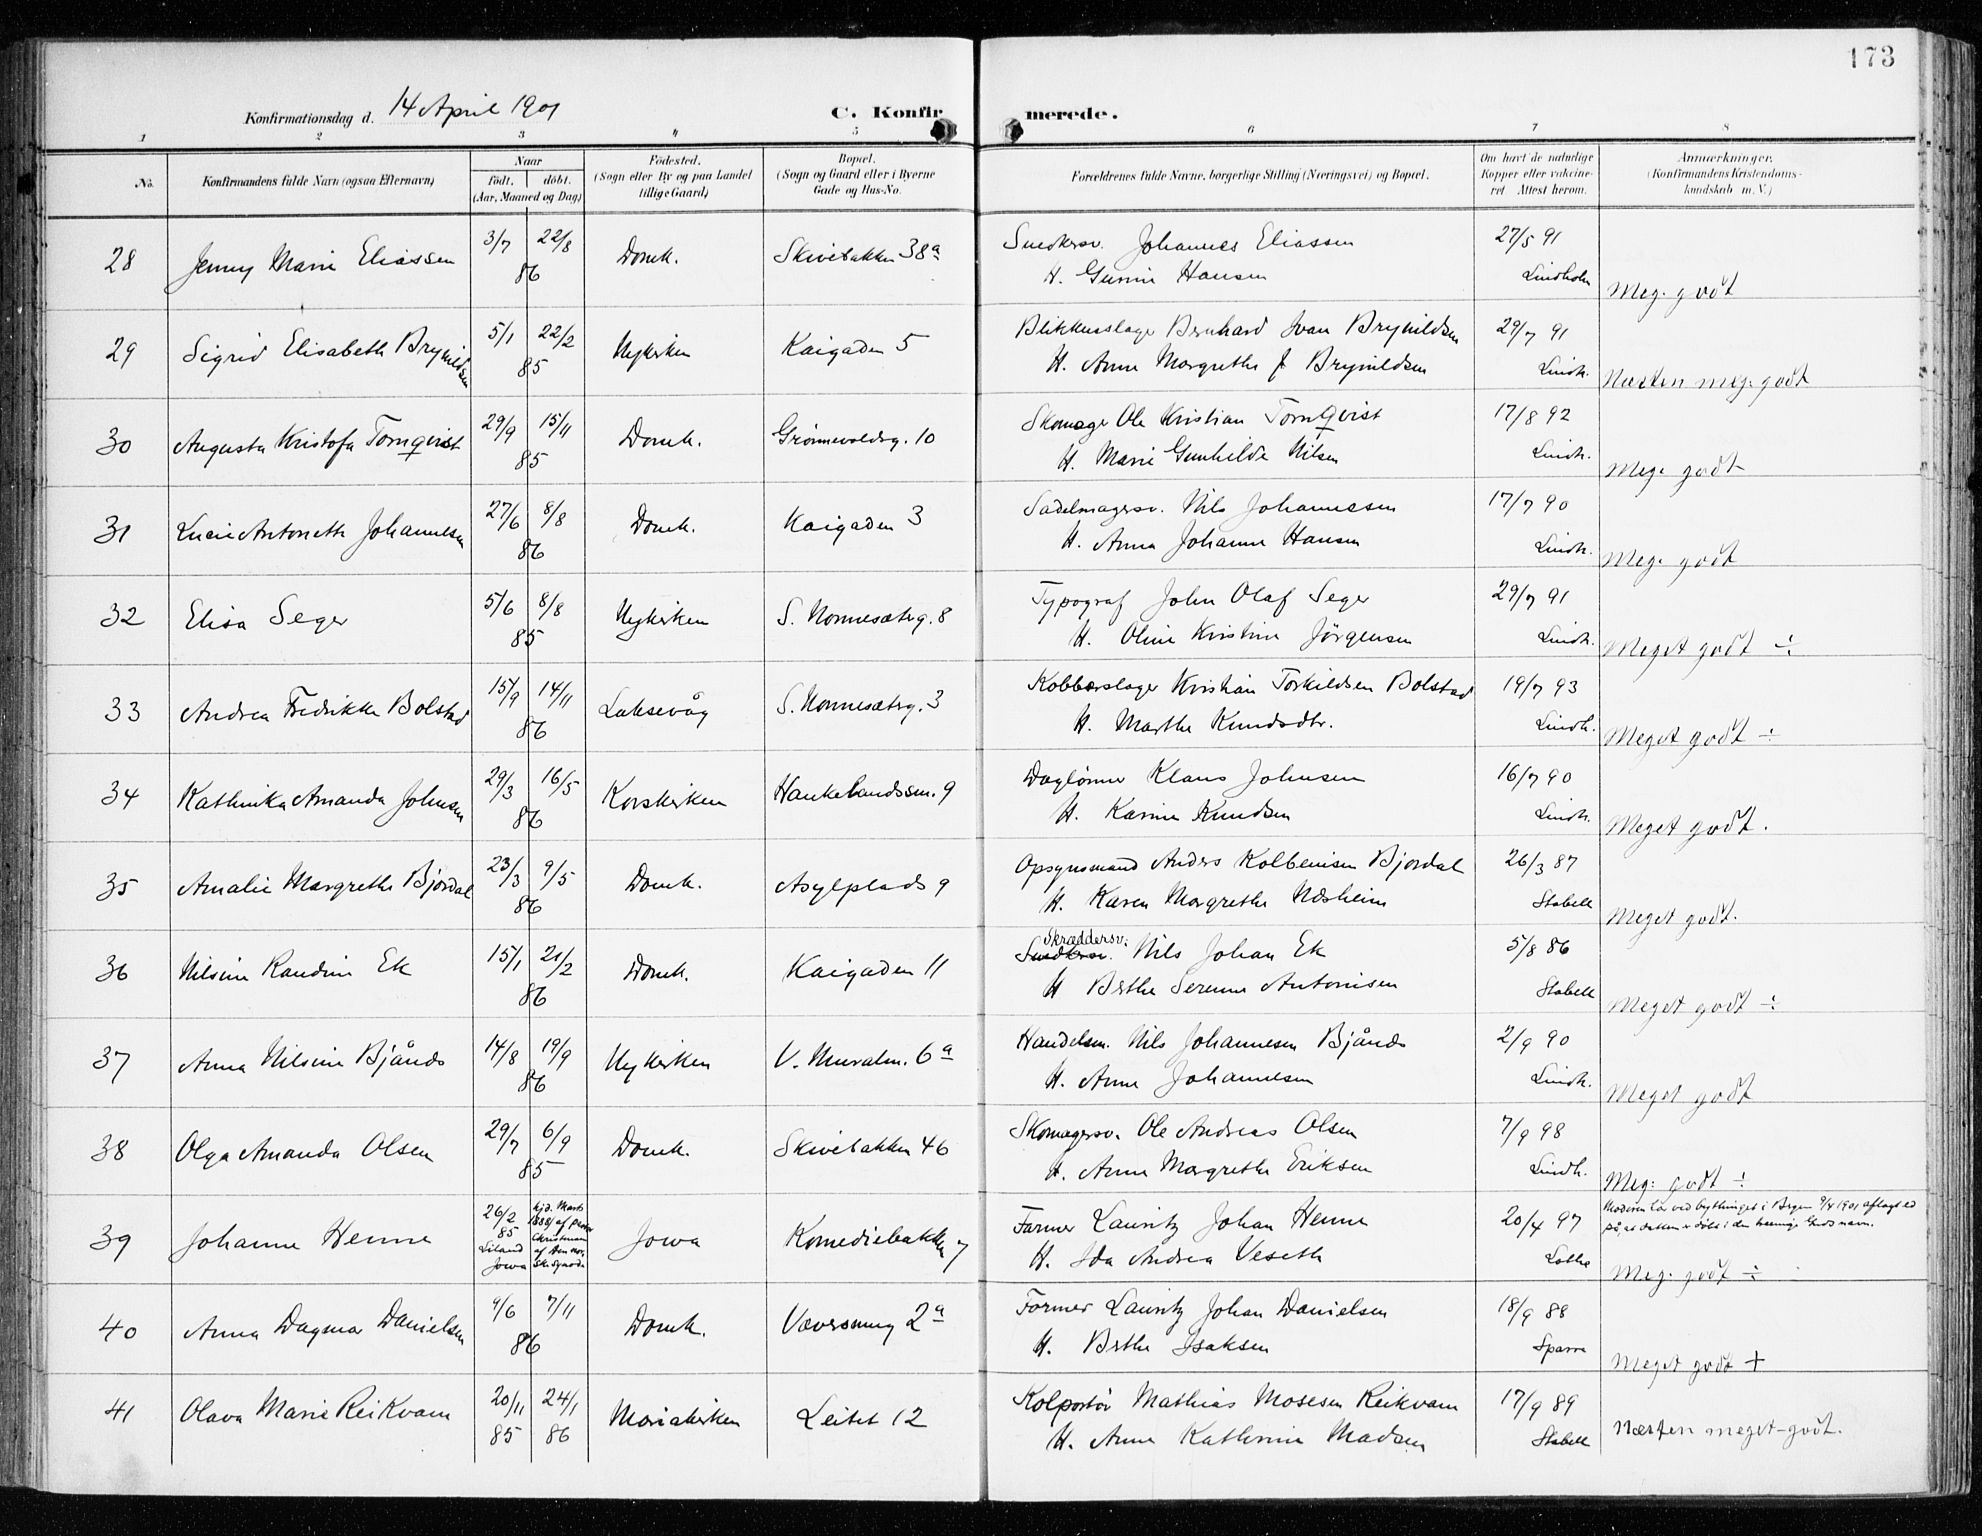 173
Konfirmationsdag d. 14 April 1901 C. Konfir merede.
1 2 3 4 5 6 7 8
No. Konfirmandens fulde Navn (ogsaa Efternavn) Naar födt. döbt. (Aar, Maaned og Dag) Födested. (Sogn eller By og paa Landet tillige Gaard) Bopæl. (Sogn og Gaard eller i Byerne Gade og Hus-No. Forældrenes fulde Navne, borgerlige Stilling (Næringsvei) og Bopæl. Om havt de naturlige Kopper eller vakcineret. Attest herom. Anmærkninger. (Konfirmandens Kristendomskundskab m. V.)
28 Jenny Marie Eliassen 3/7 22/8 86 Domk. Skivebakken 38a Snedkersv. Johannes Eliassen 27/5 91
H. Gurine Hansen Lindholm Meg. godt
29 Sigrid Elisabeth Brynildsen 5/1 22/2 85 Nykirken Kaigaden 5 Blikkenslager Bernhard Ivan Brynildsen 29/7 91
H. Anne Margrethe f Brynildsen Lindh. Næsten meg. godt
30 Augusta Kristofa Tornqvist 29/9 15/11 85 Domk. Grønnevoldsg. 10 Skomager Ole Kristian Tornqvist 17/8 92
H. Marie Gunhilde Nilsen Lindh. Meg. godt
31 Lucie Antonette Johannesen 27/6 8/8 86 Domk. Kaigaden 3 Sadelmagersv. Nils Johannesen 17/7 90
H. Anna Johanne Hansen Lindh. Meg. godt
32 Elisa Seger 5/6 8/8 85 Nykirken S. Nonnesæterg. 8 Typograf John Olaf Seger 29/7 91
H. Oline Kristine Jörgensen Lindh. Meget godt ÷
33 Andrea Fredrikke Bolstad 15/9 14/11 86 Laksevåg S. Nonnesæterg. 3 Kobberslager Kristian Torkildsen Bolstad 19/7 93
H. Marthe Knudsdtr. Lindh. Meget godt ÷
34 Kathinka Amanda Johnsen 29/3 16/5 86 Korskirken Haukelandssm. 9 Daglönner Klaus Johnsen 16/7 90
H. Karine Knudsen Lindh. Meget godt.
35 Amalie Margrethe Bjordal 23/3 9/5 86 Domk. Asylplads 9 Opsynsmand Anders Kolbeinsen Bjordal 26/3 87
H. Karen Margrethe Næsheim Stabell Meget godt.
36 Nilsine Randine Ek 15/1 21/2 86 Domk. Kaigaden 11 Skræddersv. Snedkersv. Nils Johan Ek 5/8 86
H Berthe Serenne Antonisen Stabell Meget godt ÷
37 Anna Nilsine Bjånes 14/8 19/9 86 Nykirken V. Muralm. 6a Handelsm. Nils Johannesen Bjånes 2/9 90
H. Anne Johannesen Lindh. Meget godt
38 Olga Amanda Olsen 29/7 6/9 85 Domk. Skivebakken 46 Skomagersv. Ole Andreas Olsen 7/9 98
H. Anne Margrethe Eriksen Lindh. Meg: godt ÷
39 Johanne Henne 26/2 85 Jowa Marts 1888 af Pastor Christensen af den norske Synode Jowa Komediebakken 7 Farmer Lauritz Johan Henne 20/4 97 Moderen har ved bythinget i Bergen 9/4 1901 aflagt ed på, at datteren er döbt i den treenige Guds navn.
H. Ida Andrea Veseth Lothe Meg. godt ÷
40 Anna Dagmar Danielsen 9/6 7/11 86 Domk. Væversmug 2a Former Lauritz Johan Danielsen 18/9 88
H. Berthe Isaksen Sparre Meget godt +
41 Olava Marie Reikvam 20/11 85 24/1 86 Mariakirken Leitet 12 Kolportör Mathias Mosesen Reikvam 17/9 89
H. Anne Kathrine Madsen Stabell Næsten meget godt.